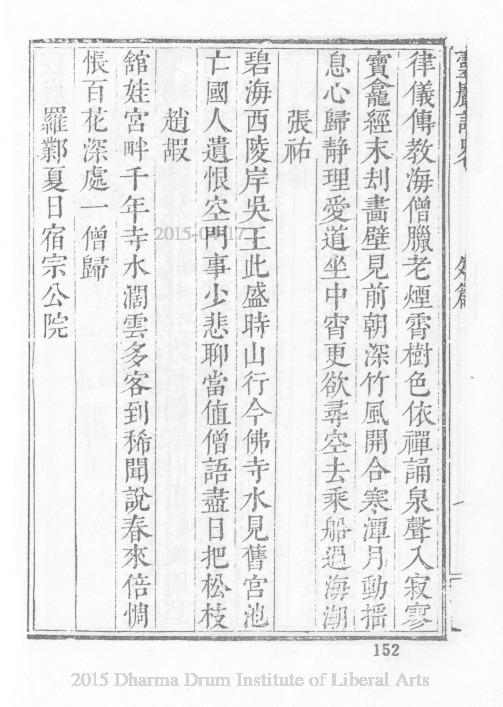 律儀傳教海僧臘老煙霄樹色依禪誦泉聲入寂寥
寶龕經末刦畵壁見前朝深竹風開合寒潭月動揺
息心歸静理愛道坐中宵更欲尋空去乘船過海潮
張祐
碧海西陵岸吳王此盛時山行今佛寺水見舊宮池
亡國人遺恨空門事少悲聊當值僧語盡日把松枝
趙嘏
舘娃宮畔千年寺水濶雲多客到稀聞說春來倍惆
悵百花深處一僧歸
羅鄴夏日宿宗公院
152
2015 Dharma Drum Institute of Liberal Arts